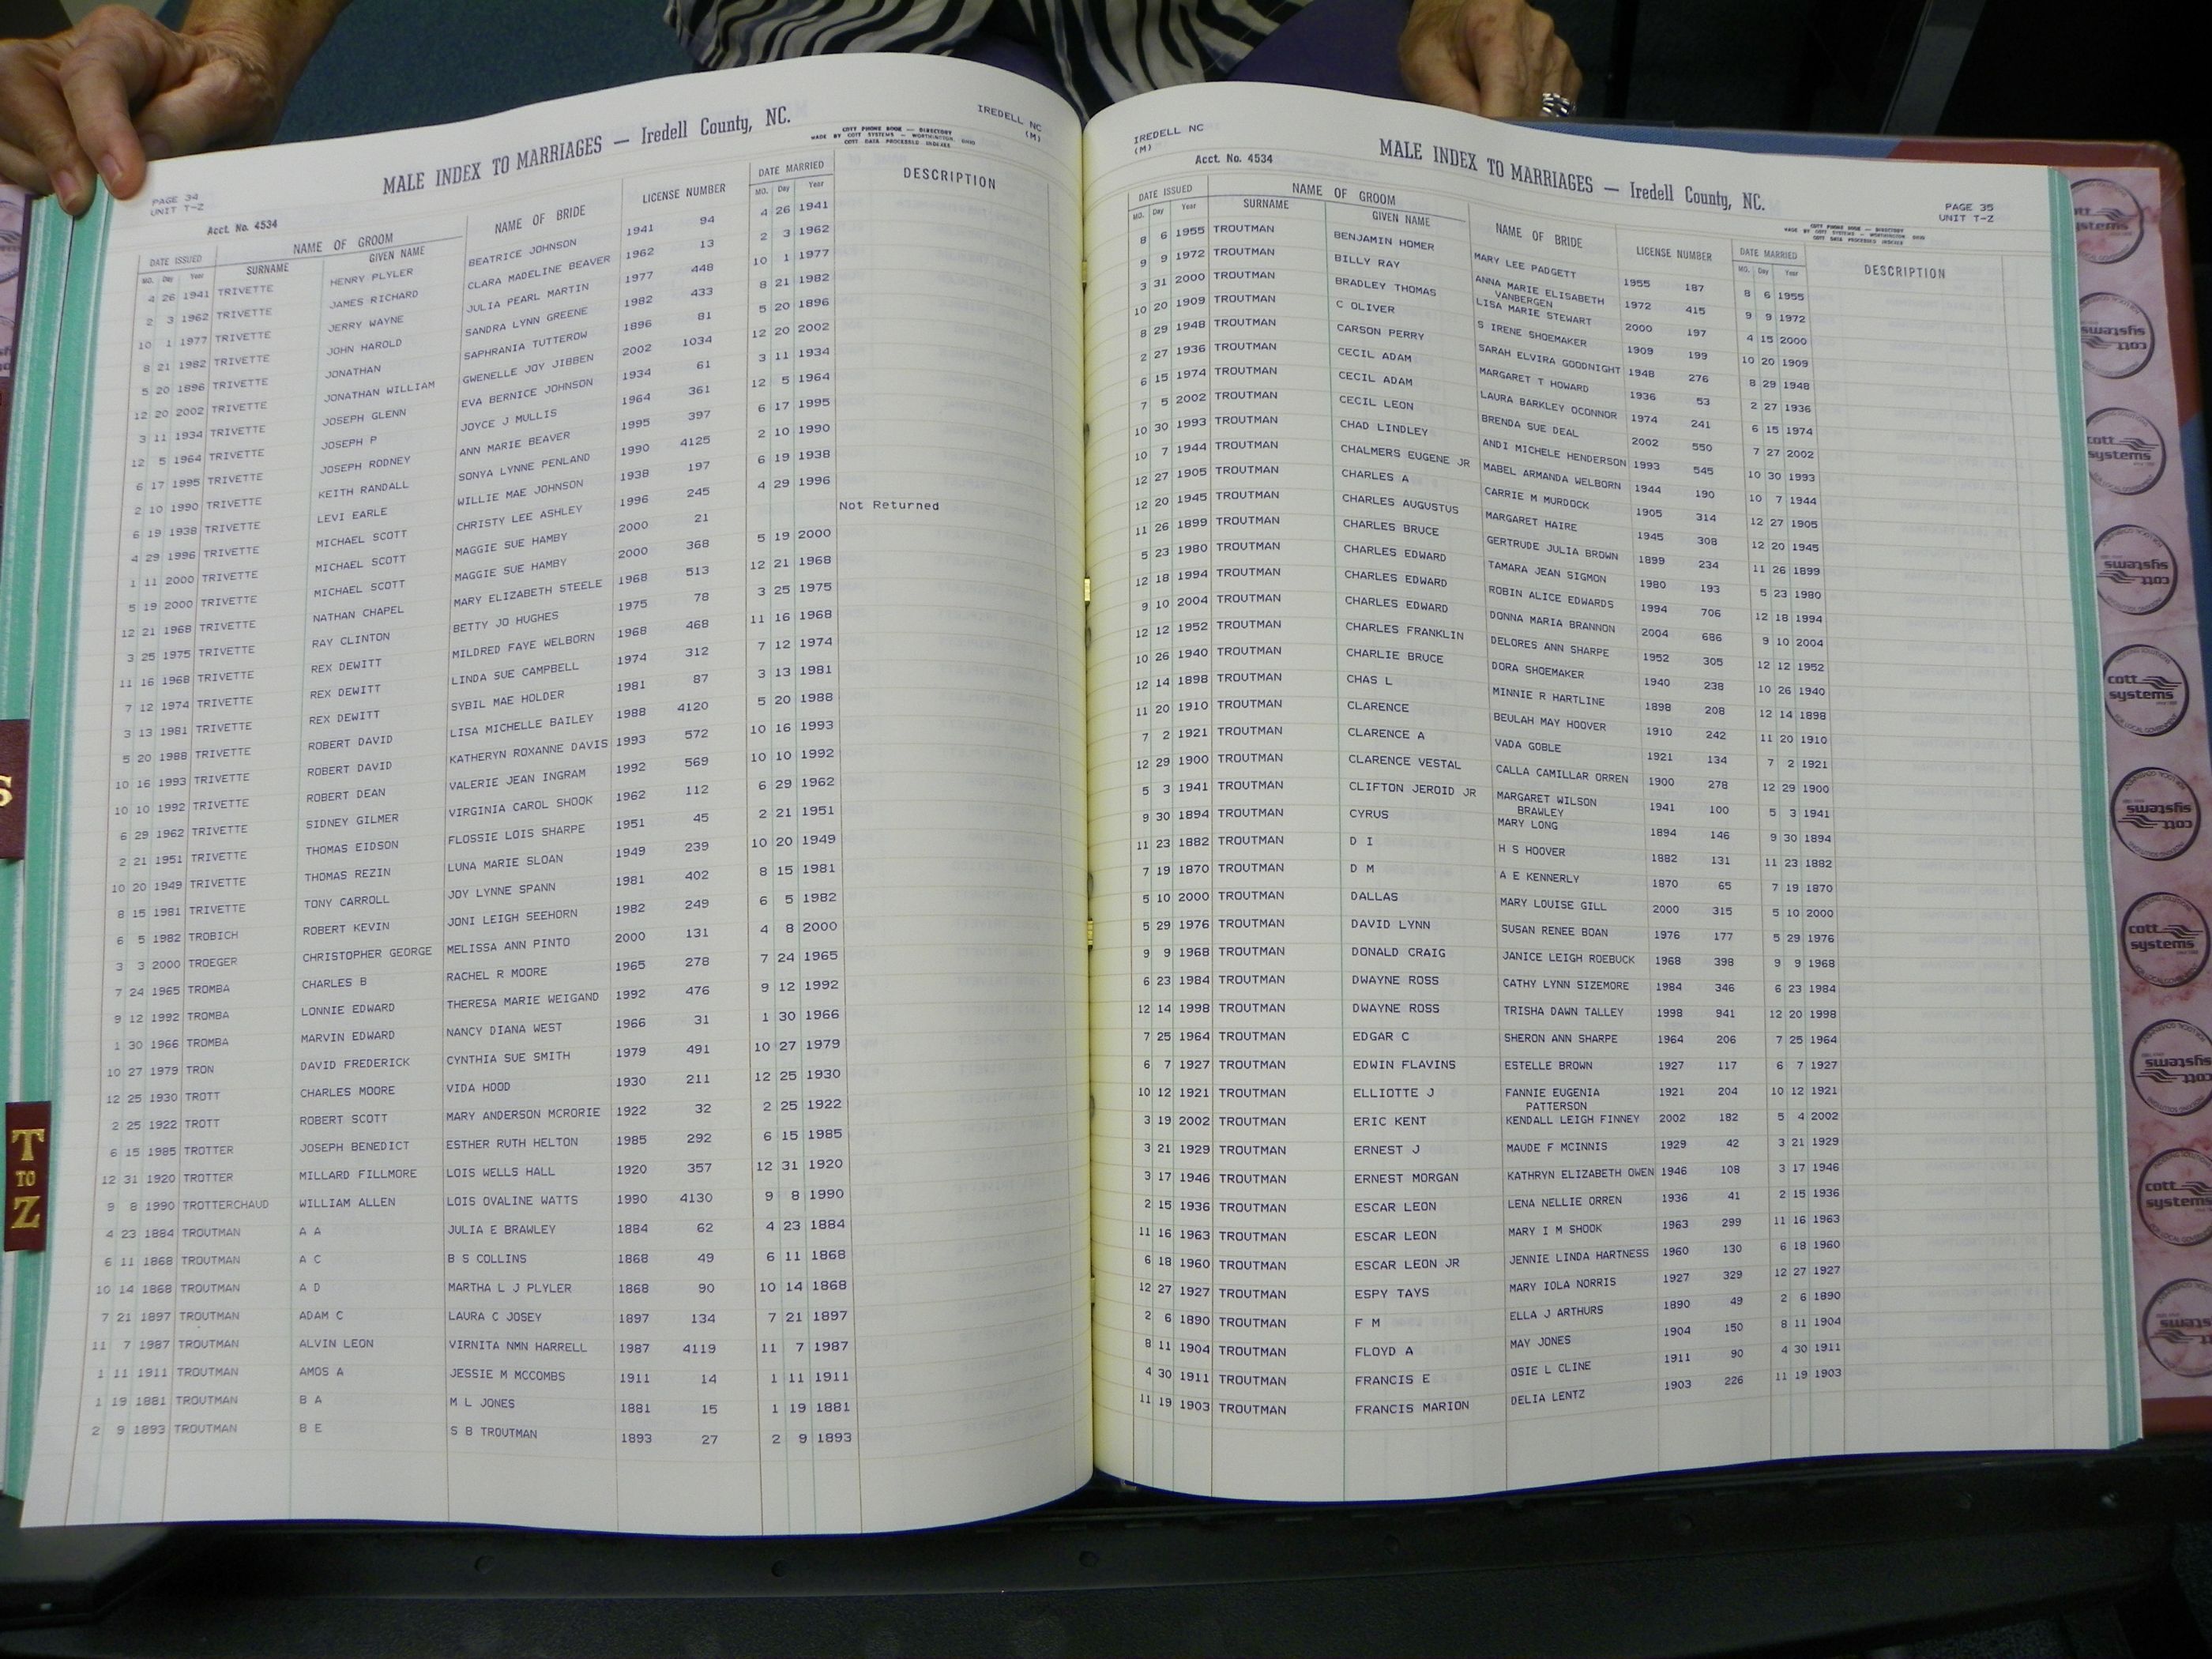 PAGE 34
UNIT T-Z
MALE INDEX TO MARRIAGES — Iredell County, NC.
COTT PHONE BOOK — DIRECTORY
MADE BY COTT SYSTEMS — WORTHINGTON, OHIO
COTT DATA PROCESSED INDEXES
IREDELL NC
(M)
Acct. No. 4534
DATE ISSUED NAME OF GROOM NAME OF BRIDE LICENSE NUMBER DATE MARRIED DESCRIPTION
MO. Day Year SURNAME GIVEN NAME MO. Day Year
4 26 1941 TRIVETTE HENRY PLYLER BEATRICE JOHNSON 1941 94 4 26 1941
2 3 1962 TRIVETTE JAMES RICHARD CLARA MADELINE BEAVER 1962 13 2 3 1962
10 1 1977 TRIVETTE JERRY WAYNE JULIA PEARL MARTIN 1977 448 10 1 1977
8 21 1982 TRIVETTE JOHN HAROLD SANDRA LYNN GREENE 1982 433 8 21 1982
5 20 1896 TRIVETTE JONATHAN SAPHRANIA TUTTEROW 1896 81 5 20 1896
12 20 2002 TRIVETTE JONATHAN WILLIAM GWENELLE JOY JIBBEN 2002 1034 12 20 2002
3 11 1934 TRIVETTE JOSEPH GLENN EVA BERNICE JOHNSON 1934 61 3 11 1934
12 5 1964 TRIVETTE JOSEPH P JOYCE J MULLIS 1964 361 12 5 1964
6 17 1995 TRIVETTE JOSEPH RODNEY ANN MARIE BEAVER 1995 397 6 17 1995
2 10 1990 TRIVETTE KEITH RANDALL SONYA LYNNE PENLAND 1990 4125 2 10 1990
6 19 1938 TRIVETTE LEVI EARLE WILLIE MAE JOHNSON 1938 197 6 19 1938
4 29 1996 TRIVETTE MICHAEL SCOTT CHRISTY LEE ASHLEY 1996 245 4 29 1996
1 11 2000 TRIVETTE MICHAEL SCOTT MAGGIE SUE HAMBY 2000 21 Not Returned
5 19 2000 TRIVETTE MICHAEL SCOTT MAGGIE SUE HAMBY 2000 368 5 19 2000
12 21 1968 TRIVETTE NATHAN CHAPEL MARY ELIZABETH STEELE 1968 513 12 21 1968
3 25 1975 TRIVETTE RAY CLINTON BETTY JO HUGHES 1975 78 3 25 1975
11 16 1968 TRIVETTE REX DEWITT MILDRED FAYE WELBORN 1968 468 11 16 1968
7 12 1974 TRIVETTE REX DEWITT LINDA SUE CAMPBELL 1974 312 7 12 1974
3 13 1981 TRIVETTE REX DEWITT SYBIL MAE HOLDER 1981 87 3 13 1981
5 20 1988 TRIVETTE ROBERT DAVID LISA MICHELLE BAILEY 1988 4120 5 20 1988
10 16 1993 TRIVETTE ROBERT DAVID KATHERYN ROXANNE DAVIS 1993 572 10 16 1993
10 10 1992 TRIVETTE ROBERT DEAN VALERIE JEAN INGRAM 1992 569 10 10 1992
6 29 1962 TRIVETTE SIDNEY GILMER VIRGINIA CAROL SHOOK 1962 112 6 29 1962
2 21 1951 TRIVETTE THOMAS EIDSON FLOSSIE LOIS SHARPE 1951 45 2 21 1951
10 20 1949 TRIVETTE THOMAS REZIN LUNA MARIE SLOAN 1949 239 10 20 1949
8 15 1981 TRIVETTE TONY CARROLL JOY LYNNE SPANN 1981 402 8 15 1981
6 5 1982 TROBICH ROBERT KEVIN JONI LEIGH SEEHORN 1982 249 6 5 1982
3 3 2000 TROEGER CHRISTOPHER GEORGE MELISSA ANN PINTO 2000 131 4 8 2000
7 24 1965 TROMBA CHARLES B RACHEL R MOORE 1965 278 7 24 1965
9 12 1992 TROMBA LONNIE EDWARD THERESA MARIE WEIGAND 1992 476 9 12 1992
1 30 1966 TROMBA MARVIN EDWARD NANCY DIANA WEST 1966 31 1 30 1966
10 27 1979 TRON DAVID FREDERICK CYNTHIA SUE SMITH 1979 491 10 27 1979
12 25 1930 TROTT CHARLES MOORE VIDA HOOD 1930 211 12 25 1930
2 25 1922 TROTT ROBERT SCOTT MARY ANDERSON MCRORIE 1922 32 2 25 1922
6 15 1985 TROTTER JOSEPH BENEDICT ESTHER RUTH HELTON 1985 292 6 15 1985
12 31 1920 TROTTER MILLARD FILLMORE LOIS WELLS HALL 1920 357 12 31 1920
9 8 1990 TROTTERCHAUD WILLIAM ALLEN LOIS OVALINE WATTS 1990 4130 9 8 1990
4 23 1884 TROUTMAN A A JULIA E BRAWLEY 1884 62 4 23 1884
6 11 1868 TROUTMAN A C B S COLLINS 1868 49 6 11 1868
10 14 1868 TROUTMAN A D MARTHA L J PLYLER 1868 90 10 14 1868
7 21 1897 TROUTMAN ADAM C LAURA C JOSEY 1897 134 7 21 1897
11 7 1987 TROUTMAN ALVIN LEON VIRNITA NMN HARRELL 1987 4119 11 7 1987
1 11 1911 TROUTMAN AMOS A JESSIE M MCCOMBS 1911 14 1 11 1911
1 19 1881 TROUTMAN B A M L JONES 1881 15 1 19 1881
2 9 1893 TROUTMAN B E S B TROUTMAN 1893 27 2 9 1893
S
T
TO
Z
IREDELL NC
(M)
MALE INDEX TO MARRIAGES — Iredell County, NC.
PAGE 35
UNIT T-Z
COTT PHONE BOOK — DIRECTORY
MADE BY COTT SYSTEMS — WORTHINGTON, OHIO
COTT DATA PROCESSED INDEXES
Acct. No. 4534
DATE ISSUED NAME OF GROOM NAME OF BRIDE LICENSE NUMBER DATE MARRIED DESCRIPTION
MO. Day Year SURNAME GIVEN NAME MO. Day Year
8 6 1955 TROUTMAN BENJAMIN HOMER MARY LEE PADGETT 1955 187 8 6 1955
9 9 1972 TROUTMAN BILLY RAY ANNA MARIE ELISABETH 1972 415 9 9 1972
VANBERGEN
3 31 2000 TROUTMAN BRADLEY THOMAS LISA MARIE STEWART 2000 197 4 15 2000
10 20 1909 TROUTMAN C OLIVER S IRENE SHOEMAKER 1909 199 10 20 1909
8 29 1948 TROUTMAN CARSON PERRY SARAH ELVIRA GOODNIGHT 1948 276 8 29 1948
2 27 1936 TROUTMAN CECIL ADAM MARGARET T HOWARD 1936 53 2 27 1936
6 15 1974 TROUTMAN CECIL ADAM LAURA BARKLEY OCONNOR 1974 241 6 15 1974
7 5 2002 TROUTMAN CECIL LEON BRENDA SUE DEAL 2002 550 7 27 2002
10 30 1993 TROUTMAN CHAD LINDLEY ANDI MICHELE HENDERSON 1993 545 10 30 1993
10 7 1944 TROUTMAN CHALMERS EUGENE JR MABEL ARMANDA WELBORN 1944 190 10 7 1944
12 27 1905 TROUTMAN CHARLES A CARRIE M MURDOCK 1905 314 12 27 1905
12 20 1945 TROUTMAN CHARLES AUGUSTUS MARGARET HAIRE 1945 308 12 20 1945
11 26 1899 TROUTMAN CHARLES BRUCE GERTRUDE JULIA BROWN 1899 234 11 26 1899
5 23 1980 TROUTMAN CHARLES EDWARD TAMARA JEAN SIGMON 1980 193 5 23 1980
12 18 1994 TROUTMAN CHARLES EDWARD ROBIN ALICE EDWARDS 1994 706 12 18 1994
9 10 2004 TROUTMAN CHARLES EDWARD DONNA MARIA BRANNON 2004 686 9 10 2004
12 12 1952 TROUTMAN CHARLES FRANKLIN DELORES ANN SHARPE 1952 305 12 12 1952
10 26 1940 TROUTMAN CHARLIE BRUCE DORA SHOEMAKER 1940 238 10 26 1940
12 14 1898 TROUTMAN CHAS L MINNIE R HARTLINE 1898 208 12 14 1898
11 20 1910 TROUTMAN CLARENCE BEULAH MAY HOOVER 1910 242 11 20 1910
7 2 1921 TROUTMAN CLARENCE A VADA GOBLE 1921 134 7 2 1921
12 29 1900 TROUTMAN CLARENCE VESTAL CALLA CAMILLAR ORREN 1900 278 12 29 1900
5 3 1941 TROUTMAN CLIFTON JEROID JR MARGARET WILSON 1941 100 5 3 1941
BRAWLEY
9 30 1894 TROUTMAN CYRUS MARY LONG 1894 146 9 30 1894
11 23 1882 TROUTMAN D I H S HOOVER 1882 131 11 23 1882
7 19 1870 TROUTMAN D M A E KENNERLY 1870 65 7 19 1870
5 10 2000 TROUTMAN DALLAS MARY LOUISE GILL 2000 315 5 10 2000
5 29 1976 TROUTMAN DAVID LYNN SUSAN RENEE BOAN 1976 177 5 29 1976
9 9 1968 TROUTMAN DONALD CRAIG JANICE LEIGH ROEBUCK 1968 398 9 9 1968
6 23 1984 TROUTMAN DWAYNE ROSS CATHY LYNN SIZEMORE 1984 346 6 23 1984
12 14 1998 TROUTMAN DWAYNE ROSS TRISHA DAWN TALLEY 1998 941 12 20 1998
7 25 1964 TROUTMAN EDGAR C SHERON ANN SHARPE 1964 206 7 25 1964
6 7 1927 TROUTMAN EDWIN FLAVINS ESTELLE BROWN 1927 117 6 7 1927
10 12 1921 TROUTMAN ELLIOTTE J FANNIE EUGENIA 1921 204 10 12 1921
PATTERSON
3 19 2002 TROUTMAN ERIC KENT KENDALL LEIGH FINNEY 2002 182 5 4 2002
3 21 1929 TROUTMAN ERNEST J MAUDE F MCINNIS 1929 42 3 21 1929
3 17 1946 TROUTMAN ERNEST MORGAN KATHRYN ELIZABETH OWEN 1946 108 3 17 1946
2 15 1936 TROUTMAN ESCAR LEON LENA NELLIE ORREN 1936 41 2 15 1936
11 16 1963 TROUTMAN ESCAR LEON MARY I M SHOOK 1963 299 11 16 1963
6 18 1960 TROUTMAN ESCAR LEON JR JENNIE LINDA HARTNESS 1960 130 6 18 1960
12 27 1927 TROUTMAN ESPY TAYS MARY IOLA NORRIS 1927 329 12 27 1927
2 6 1890 TROUTMAN F M ELLA J ARTHURS 1890 49 2 6 1890
8 11 1904 TROUTMAN FLOYD A MAY JONES 1904 150 8 11 1904
4 30 1911 TROUTMAN FRANCIS E OSIE L CLINE 1911 90 4 30 1911
11 19 1903 TROUTMAN FRANCIS MARION DELIA LENTZ 1903 226 11 19 1903
cott systems
cott systems
cott systems
cott systems
cott systems